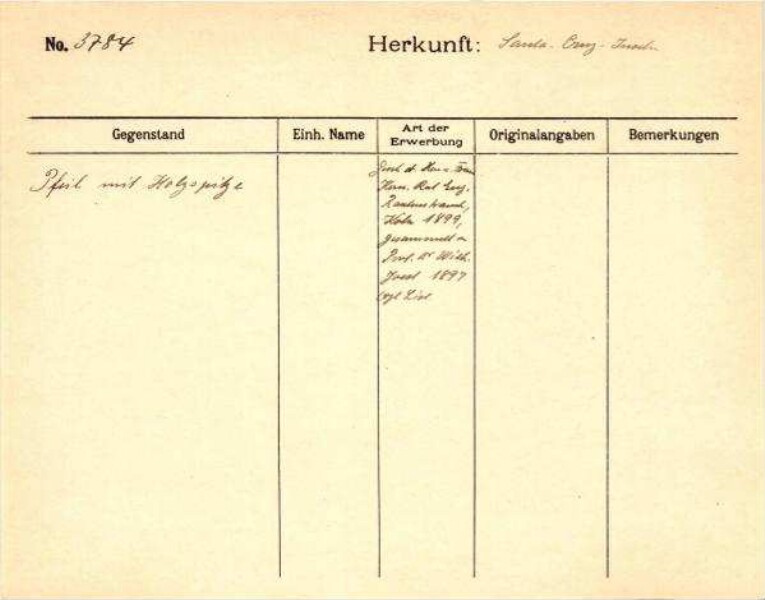 No. 3784 Herkunft: Santa-Cruz-Inseln
Gegenstand Einh. Name Art der Erwerbung Originalangaben Bemerkungen
Pfeil mit Holzspitze
d. Herr u. Frau
Kom. Rat Eug.
Rautenstrauch,
Köln 1899,
gesammelt v.
Prof. Dr Wilh.
Joest 1897
vgl List